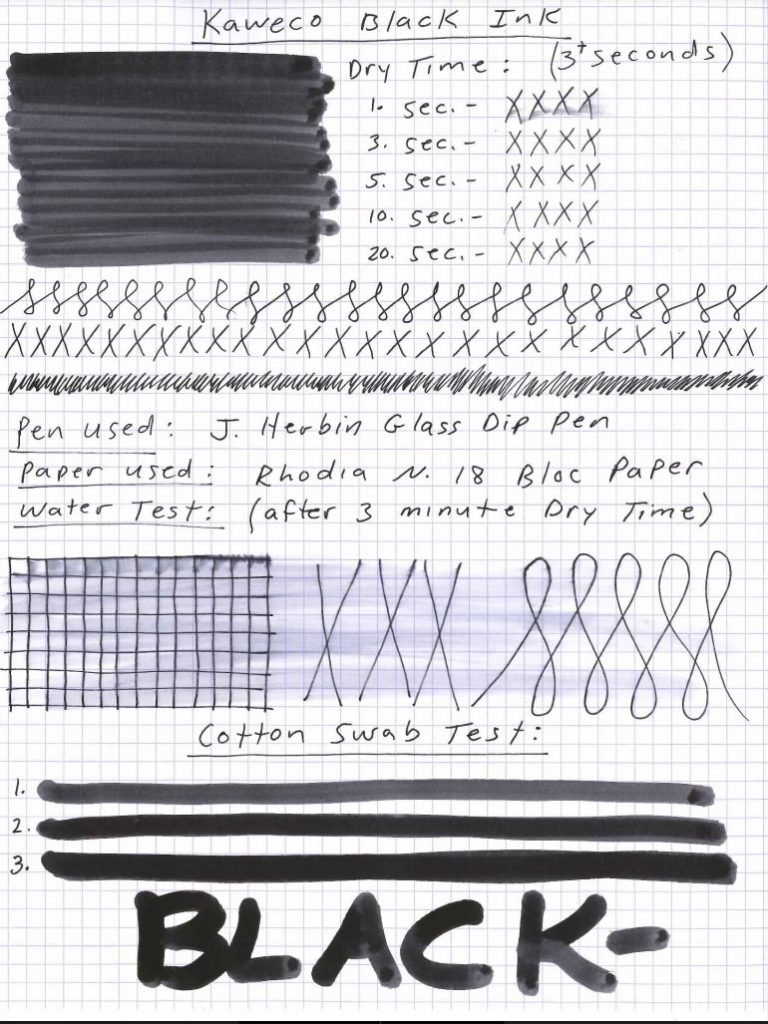 Kaweco Black Ink
Dry Time: (3+ seconds)
1. sec.- XXXX
3. sec.- XXXX
5. sec.- XXXX
10. sec.- XXXX
20. sec.- XXXX
XXXXXXXXXXXXXXXXXXXXXXXXXX
Pen used: J. Herbin Glass Dip Pen
Paper used: Rhodia N. 18 Bloc Paper
Water Test: (after 3 minute Dry Time)
XXX
Cotton Swab Test:
1.
2.
3.
BLACK-